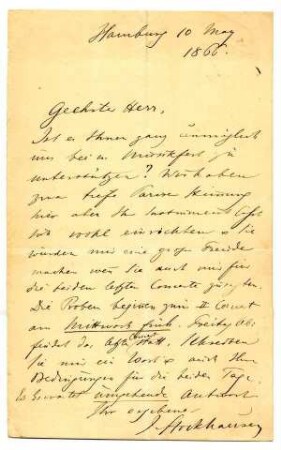 Hamburg 10 May
1866.
Geehrter Herr,
Ist es Ihnen ganz unmöglich
uns beim Musikfest zu
unterstützen? Wir haben
zwar tiefe Pariser Stimmung
hier aber Ihr Instrument läßt
sich wohl einrichten & Sie
würden mir eine große Freude
machen wenn Sie auch nur für
die beiden letzten Concerte zusagten.
Die Proben beginnen zum II Concert
am Mittwoch früh. Freitag Ab:
findet das letzte statt. Schreiben
Sie mir ein Wort & auch Ihre
Bedingungen für die beiden Tage.
Es erwartet umgehende Antwort
Ihr ergebener
J. Stockhausen